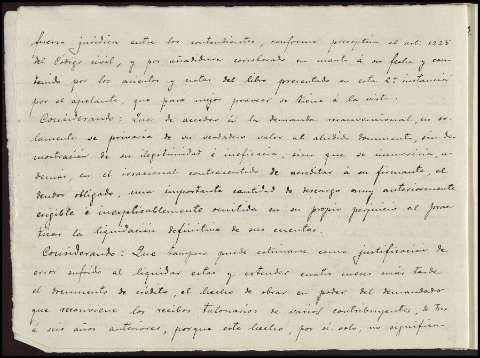 fuerza jurídica entre los contendientes, conforme preceptúa el art. 1225
del Código civil, y por añadidura corroborado en cuanto á su fecha y con-
tenido por los asientos y notas del libro presentado en esta 2ª instancia
por el apelante, que para mejor proveer se tiene á la vista.
Considerando: Que de acceder á la demanda reconvencional, no so-
lamente se privaría de su verdadero valor al aludido documento, sin de-
mostración de su ilegitimidad é ineficacia, sino que se incurriría, a-
demás, en el irracional contrasentido de acreditar á su firmante, el
deudor obligado, una importante cantidad de descargo muy anteriormente
exigible é inexplicablemente omitida en su propio perjuicio al prac-
ticar la liquidación definitiva de sus cuentas.
Considerando: Que tampoco puede estimarse como justificación de
error sufrido al liquidar estas y extender cuatro meses más tarde
el documento de crédito, el hecho de obrar en poder del demandado
que reconviene los recibos talonarios de varios contribuyentes, de tres
á seis años anteriores, porque este hecho, por sí solo, no significa-